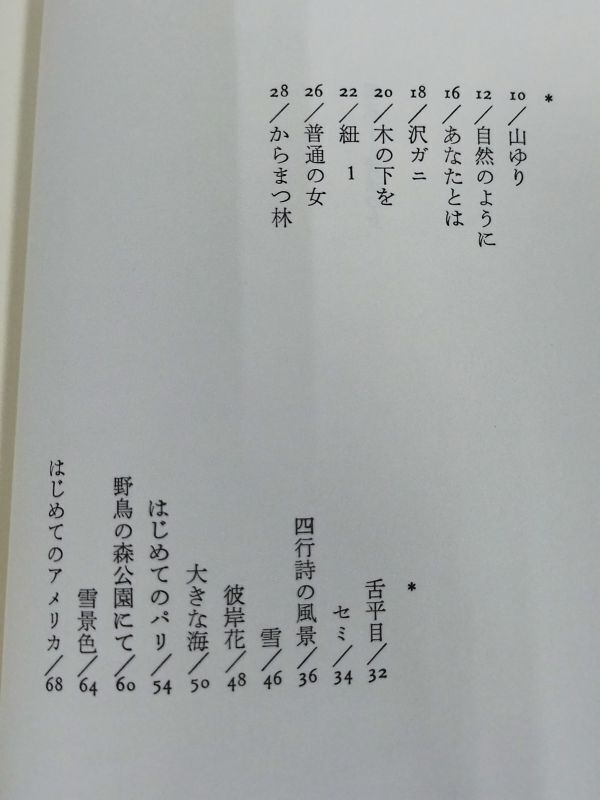 *
10/山ゆり
12/自然のように
16/あなたとは
18/沢ガニ
20/木の下を
22/紐 1
26/普通の女
28/からまつ林
*
舌平目/32
セミ/34
四行詩の風景/36
雪/46
彼岸花/48
大きな海/50
はじめてのパリ/54
野鳥の森公園にて/60
雪景色/64
はじめてのアメリカ/68